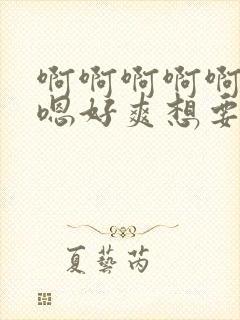 啊啊啊啊啊
嗯好爽想要
夏藝芮